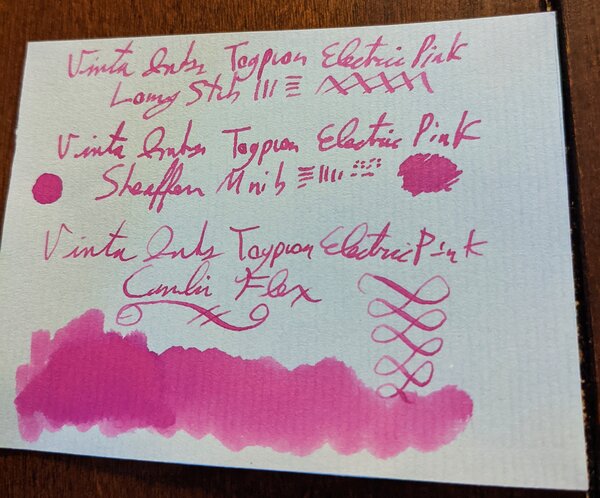 Vinta Inks Tagpuan Electric Pink
Lamy Stub
Vinta Inks Tagpuan Electric Pink
Sheaffer M nib
Vinta Inks Tagpuan Electric Pink
Conklin Flex